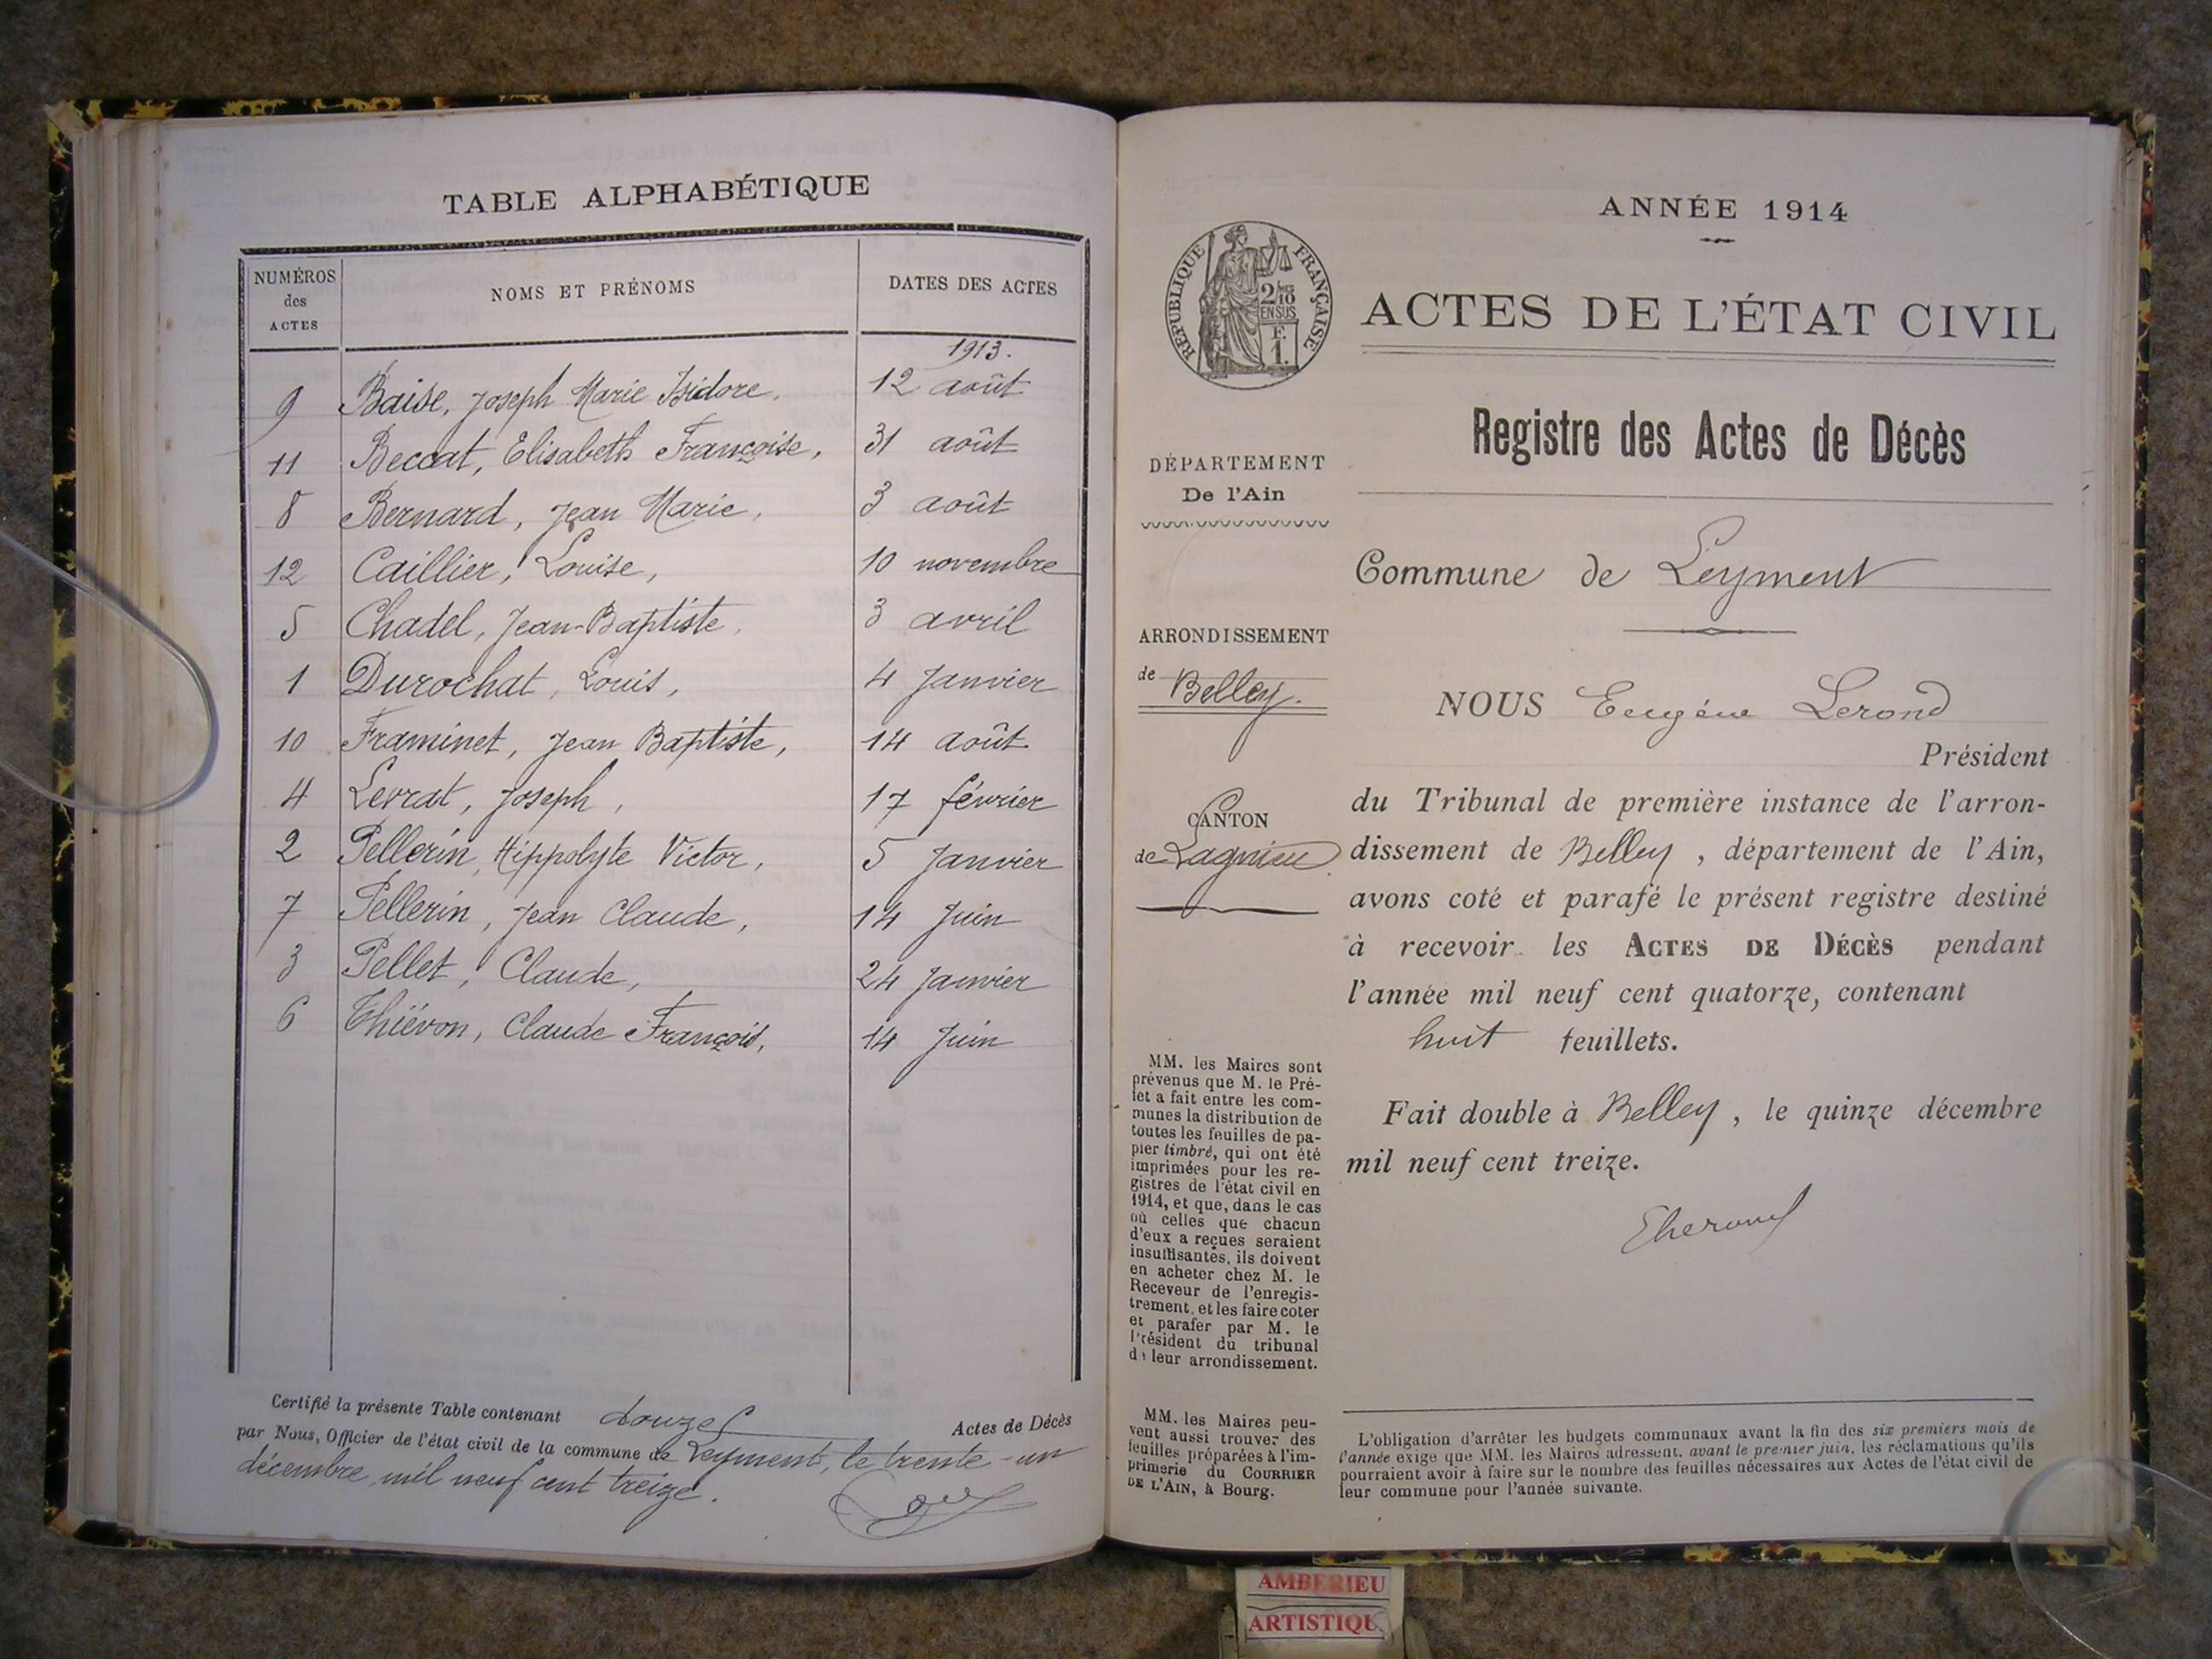 TABLE ALPHABÉTIQUE
NUMÉROS des ACTES
NOMS ET PRÉNOMS
DATES DES ACTES
1913.
9 Baise, Joseph Marie Isidore, 12 août
11 Beccat, Elisabeth Françoise, 31 août
8 Bernard, Jean Marie, 3 août
12 Caillier, Louise, 10 novembre
5 Chadel, Jean-Baptiste, 3 avril
1 Durochat, Louis, 4 Janvier
10 Framinet, Jean Baptiste, 14 août
4 Levrat, Joseph, 17 février
2 Pellerin, Hippolyte Victor, 5 Janvier
7 Pellerin, Jean Claude, 14 Juin
3 Pellet, Claude, 24 Janvier
6 Thiévon, Claude François, 14 Juin
Certifié la présente Table contenant douze Actes de Décès
par Nous, Officier de l'état civil de la commune de Leyment, le trente-un
décembre mil neuf cent treize.
ANNÉE 1914
RÉPUBLIQUE FRANÇAISE
2/10
EN SUS
F.
1.
ACTES DE L'ÉTAT CIVIL
Registre des Actes de Décès
DÉPARTEMENT
De l'Ain
Commune de Leyment
ARRONDISSEMENT
de Belley.
CANTON
de Lagnieu
NOUS Eugène Lerond
Président
du Tribunal de première instance de l'arron-
dissement de Belley, département de l'Ain,
avons coté et parafé le présent registre destiné
à recevoir les ACTES DE DÉCÈS pendant
l'année mil neuf cent quatorze, contenant
huit feuillets.
Fait double à Belley, le quinze décembre
mil neuf cent treize.
MM. les Maires sont
prévenus que M. le Pré-
fet a fait entre les com-
munes la distribution de
toutes les feuilles de pa-
pier timbré, qui ont été
imprimées pour les re-
gistres de l'état civil en
1914, et que, dans le cas
où celles que chacun
d'eux a reçues seraient
insuffisantes, ils doivent
en acheter chez M. le
Receveur de l'enregis-
trement, et les faire coter
et parafer par M. le
Président du tribunal
de leur arrondissement.
MM. les Maires peu-
vent aussi trouver des
feuilles préparées à l'im-
primerie du COURRIER
DE L'AIN, à Bourg.
L'obligation d'arrêter les budgets communaux avant la fin des six premiers mois de
l'année exige que MM. les Maires adressent, avant le premier juin, les réclamations qu'ils
pourraient avoir à faire sur le nombre des feuilles nécessaires aux Actes de l'état civil de
leur commune pour l'année suivante.
AMBERIEU
ARTISTIQU